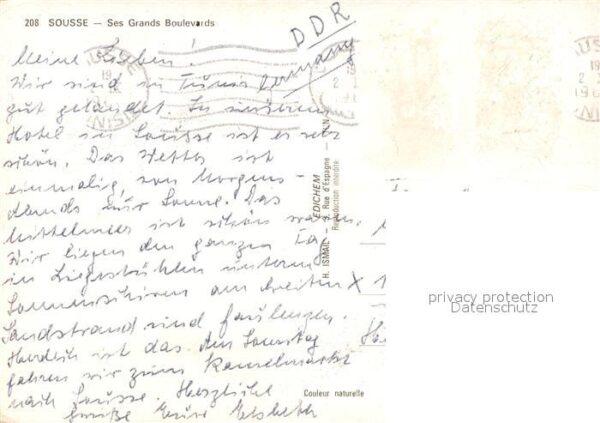 208 SOUSSE — Ses Grands Boulevards
DDR
Germany
Meine Lieben!
Wir sind in Tunis
gut gelandet. In unserem
Hotel in Sousse ist es sehr
schön. Das Wetter ist
einmalig, von Morgens -
Abends nur Sonne. Das
Mittelmeer ist schön warm.
Wir liegen den ganzen Tag
in Liegestühlen unterm
Sonnenschirm am breiten
Sandstrand und faulenzen.
Herrlich ist das. Am Sonntag
fahren wir zum Kamelmarkt
nach Sousse. Herzliche
Grüße Eure Elsbeth
H. ISMAIL — EDICHEM
Rue d'Espagne
Reproduction interdite
Couleur naturelle
privacy protection
Datenschutz